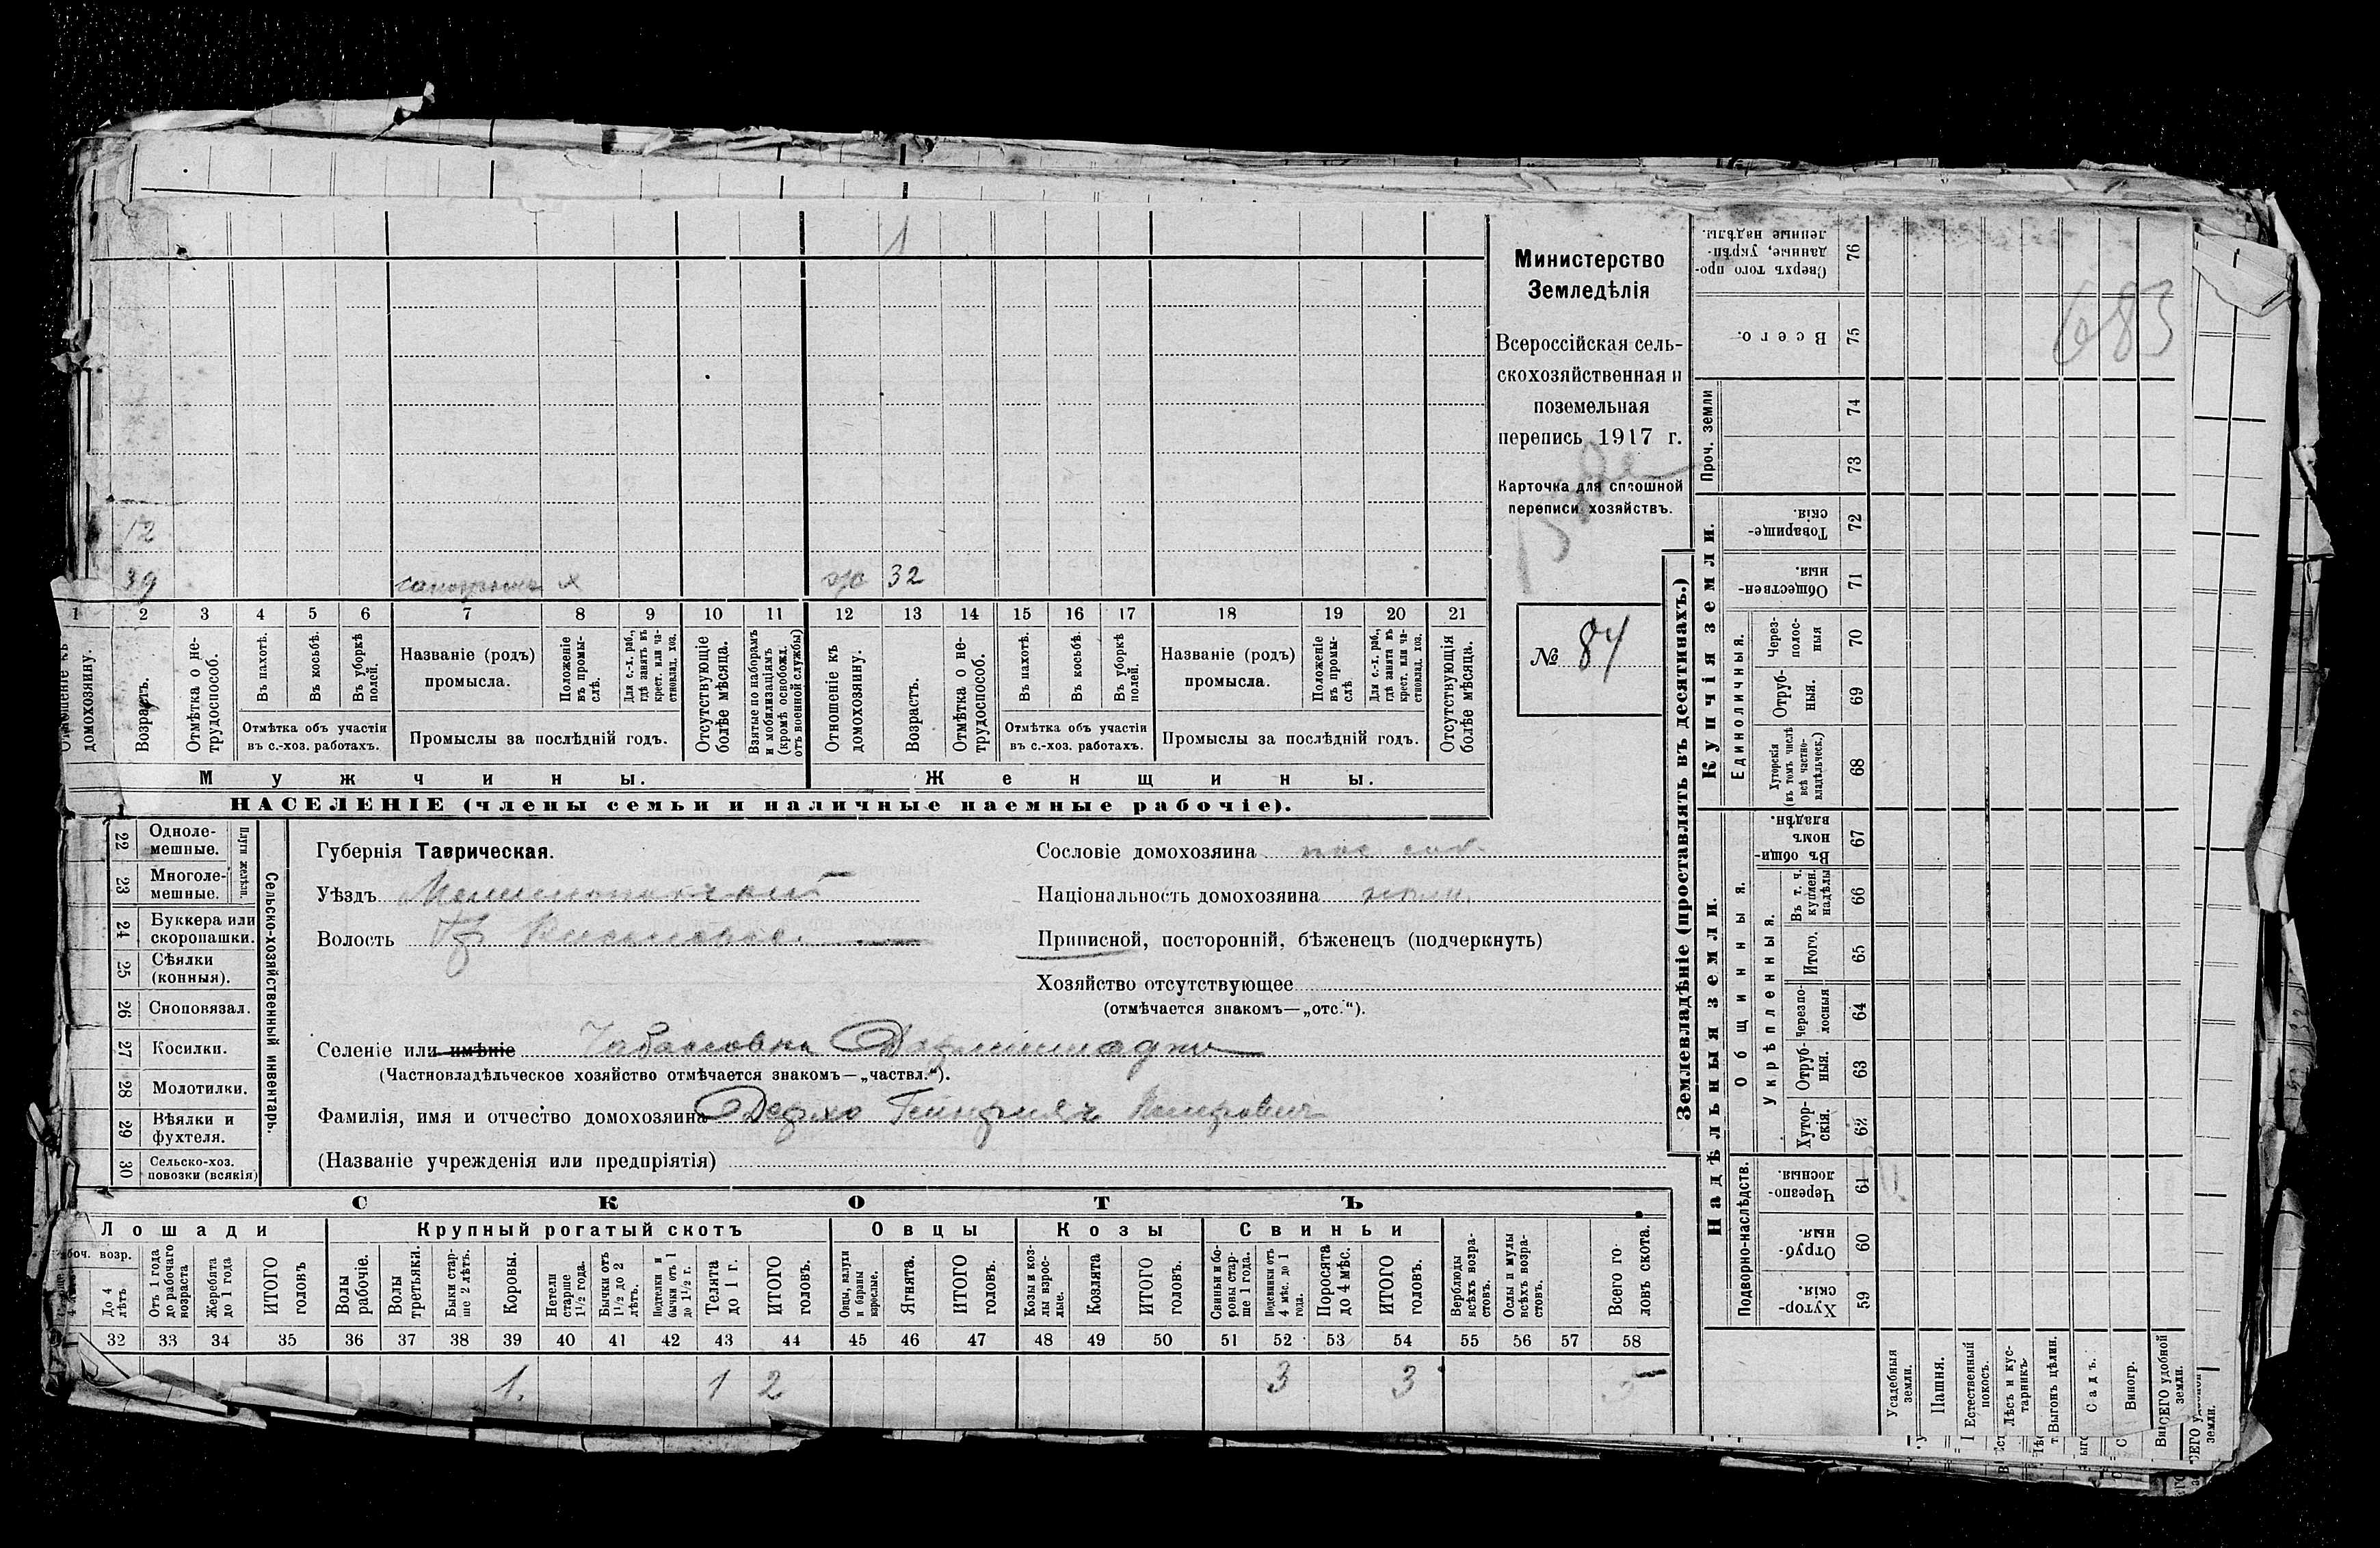 1
12
39
32
1 2 3 4 5 6 7 8 9 10 11 12 13 14 15 16 17 18 19 20 21
домохозяину.
Возрастъ.
Отмѣтка о не-
трудоспособ.
Въ пахотѣ.
Въ косьбѣ.
Въ уборкѣ
полей.
Отмѣтка объ участіи
въ с.-хоз. работахъ.
Названіе (родъ)
промысла.
Положеніе
въ промы-
слѣ.
Для с.-х. раб.,
гдѣ занятъ въ
крест. или ча-
стновлад. хоз.
Промыслы за послѣдній годъ.
Отсутствующіе
болѣе мѣсяца.
Взятые по наборамъ
и мобилизаціямъ
(кромѣ освобожд.
отъ военной службы)
Отношеніе къ
домохозяину.
Возрастъ.
Отмѣтка о не-
трудоспособ.
Въ пахотѣ.
Въ косьбѣ.
Въ уборкѣ
полей.
Отмѣтка объ участіи
въ с.-хоз. работахъ.
Названіе (родъ)
промысла.
Положеніе
въ промы-
слѣ
Для с.-х. раб.,
гдѣ занята въ
крест. или ча-
стновлад. хоз.
Промыслы за послѣдній годъ.
Отсутствующія
болѣе мѣсяца.
Мужчины.
Женщины.
НАСЕЛЕНІЕ (члены семьи и наличные наемные рабочіе).
Министерство
Земледѣлія
Всероссійская сель-
скохозяйственная и
поземельная
перепись 1917 г.
Карточка для сплошной
переписи хозяйствъ.
№ 84
22 Одноле-
мешные.
23 Многоле-
мешные.
Плуги желѣзн.
24 Буккера или
скоропашки.
25 Сѣялки
(конныя).
26 Сноповязал.
27 Косилки.
28 Молотилки.
29 Вѣялки и
фухтеля.
30 Сельско-хоз.
повозки (всякія)
Сельско-хозяйственный инвентарь.
Губернія Таврическая.
Уѣздъ Мелитопольскій
Волость
Сословіе домохозяина пос. соб.
Національность домохозяина
Приписной, посторонній, бѣженецъ (подчеркнуть)
Хозяйство отсутствующее
(отмѣчается знакомъ—„отс.“).
Селеніе или имѣніе
(Частновладѣльческое хозяйство отмѣчается знакомъ—„частвл.“).
Фамилія, имя и отчество домохозяина Дерхо Гейнрихъ Петрович
(Названіе учрежденія или предпріятія)
СКОТЪ.
Лошади
Крупный рогатый скотъ
Овцы
Козы
Свиньи
До 4
лѣтъ
Отъ 1 года
до рабочаго
возраста
Жеребята
до 1 года
ИТОГО
головъ
Волы
рабочіе.
Волы
третьяки.
Быки стар-
ше 2 лѣтъ.
Коровы.
Нетели
старше
1½ года.
Бычки отъ
1½ до 2
лѣтъ.
Подтелки и
бычки отъ 1
до 1½ г.
Телята
до 1 г.
ИТОГО
головъ.
Овцы, валухи
и бараны
взрослые.
Ягнята.
ИТОГО
головъ.
Козы и коз-
лы взрос-
лые.
Козлята
ИТОГО
головъ.
Свиньи и бо-
ровы стар-
ше 1 года.
Подсвинки отъ
4 мѣс. до 1
года.
Поросята
до 4 мѣс.
ИТОГО
головъ.
Верблюды
всѣхъ возра-
стовъ.
Ослы и мулы
всѣхъ возра-
стовъ.
Всего го-
ловъ скота.
32 33 34 35 36 37 38 39 40 41 42 43 44 45 46 47 48 49 50 51 52 53 54 55 56 57 58
1. 1 2 3 3 5
Землевладѣніе (проставлять въ десятинахъ.)
Купчія земли.
Надѣльныя земли.
Сверхъ того про-
данные, укрѣп-
ленные надѣлы. 76
Всего. 75
Проч. земли 74
73
Товарище-
скія. 72
Обществен-
ныя. 71
Единоличныя.
Через-
полос-
ныя 70
Отруб-
ныя. 69
Хуторскія
(въ томъ числѣ
всѣ частно-
владѣльческ.) 68
Общинныя.
Въ общи-
номъ
владѣн. 67
Укрѣпленныя.
Въ т. ч.
куплен.
надѣлы 66
Итого. 65
Черезпо-
лосныя 64
Отруб-
ныя. 63
Хутор-
скія. 62
Подворно-наслѣдств.
Черезпо-
лосныя 61
Отруб-
ныя. 60
Хутор-
скія. 59
Усадебныя
земли.
Пашня.
Естественный
покосъ.
Лѣсъ и кус-
тарникъ
Выгонъ цѣлин.
Садъ.
Виногр.
ВСЕГО удобной
земли.
683